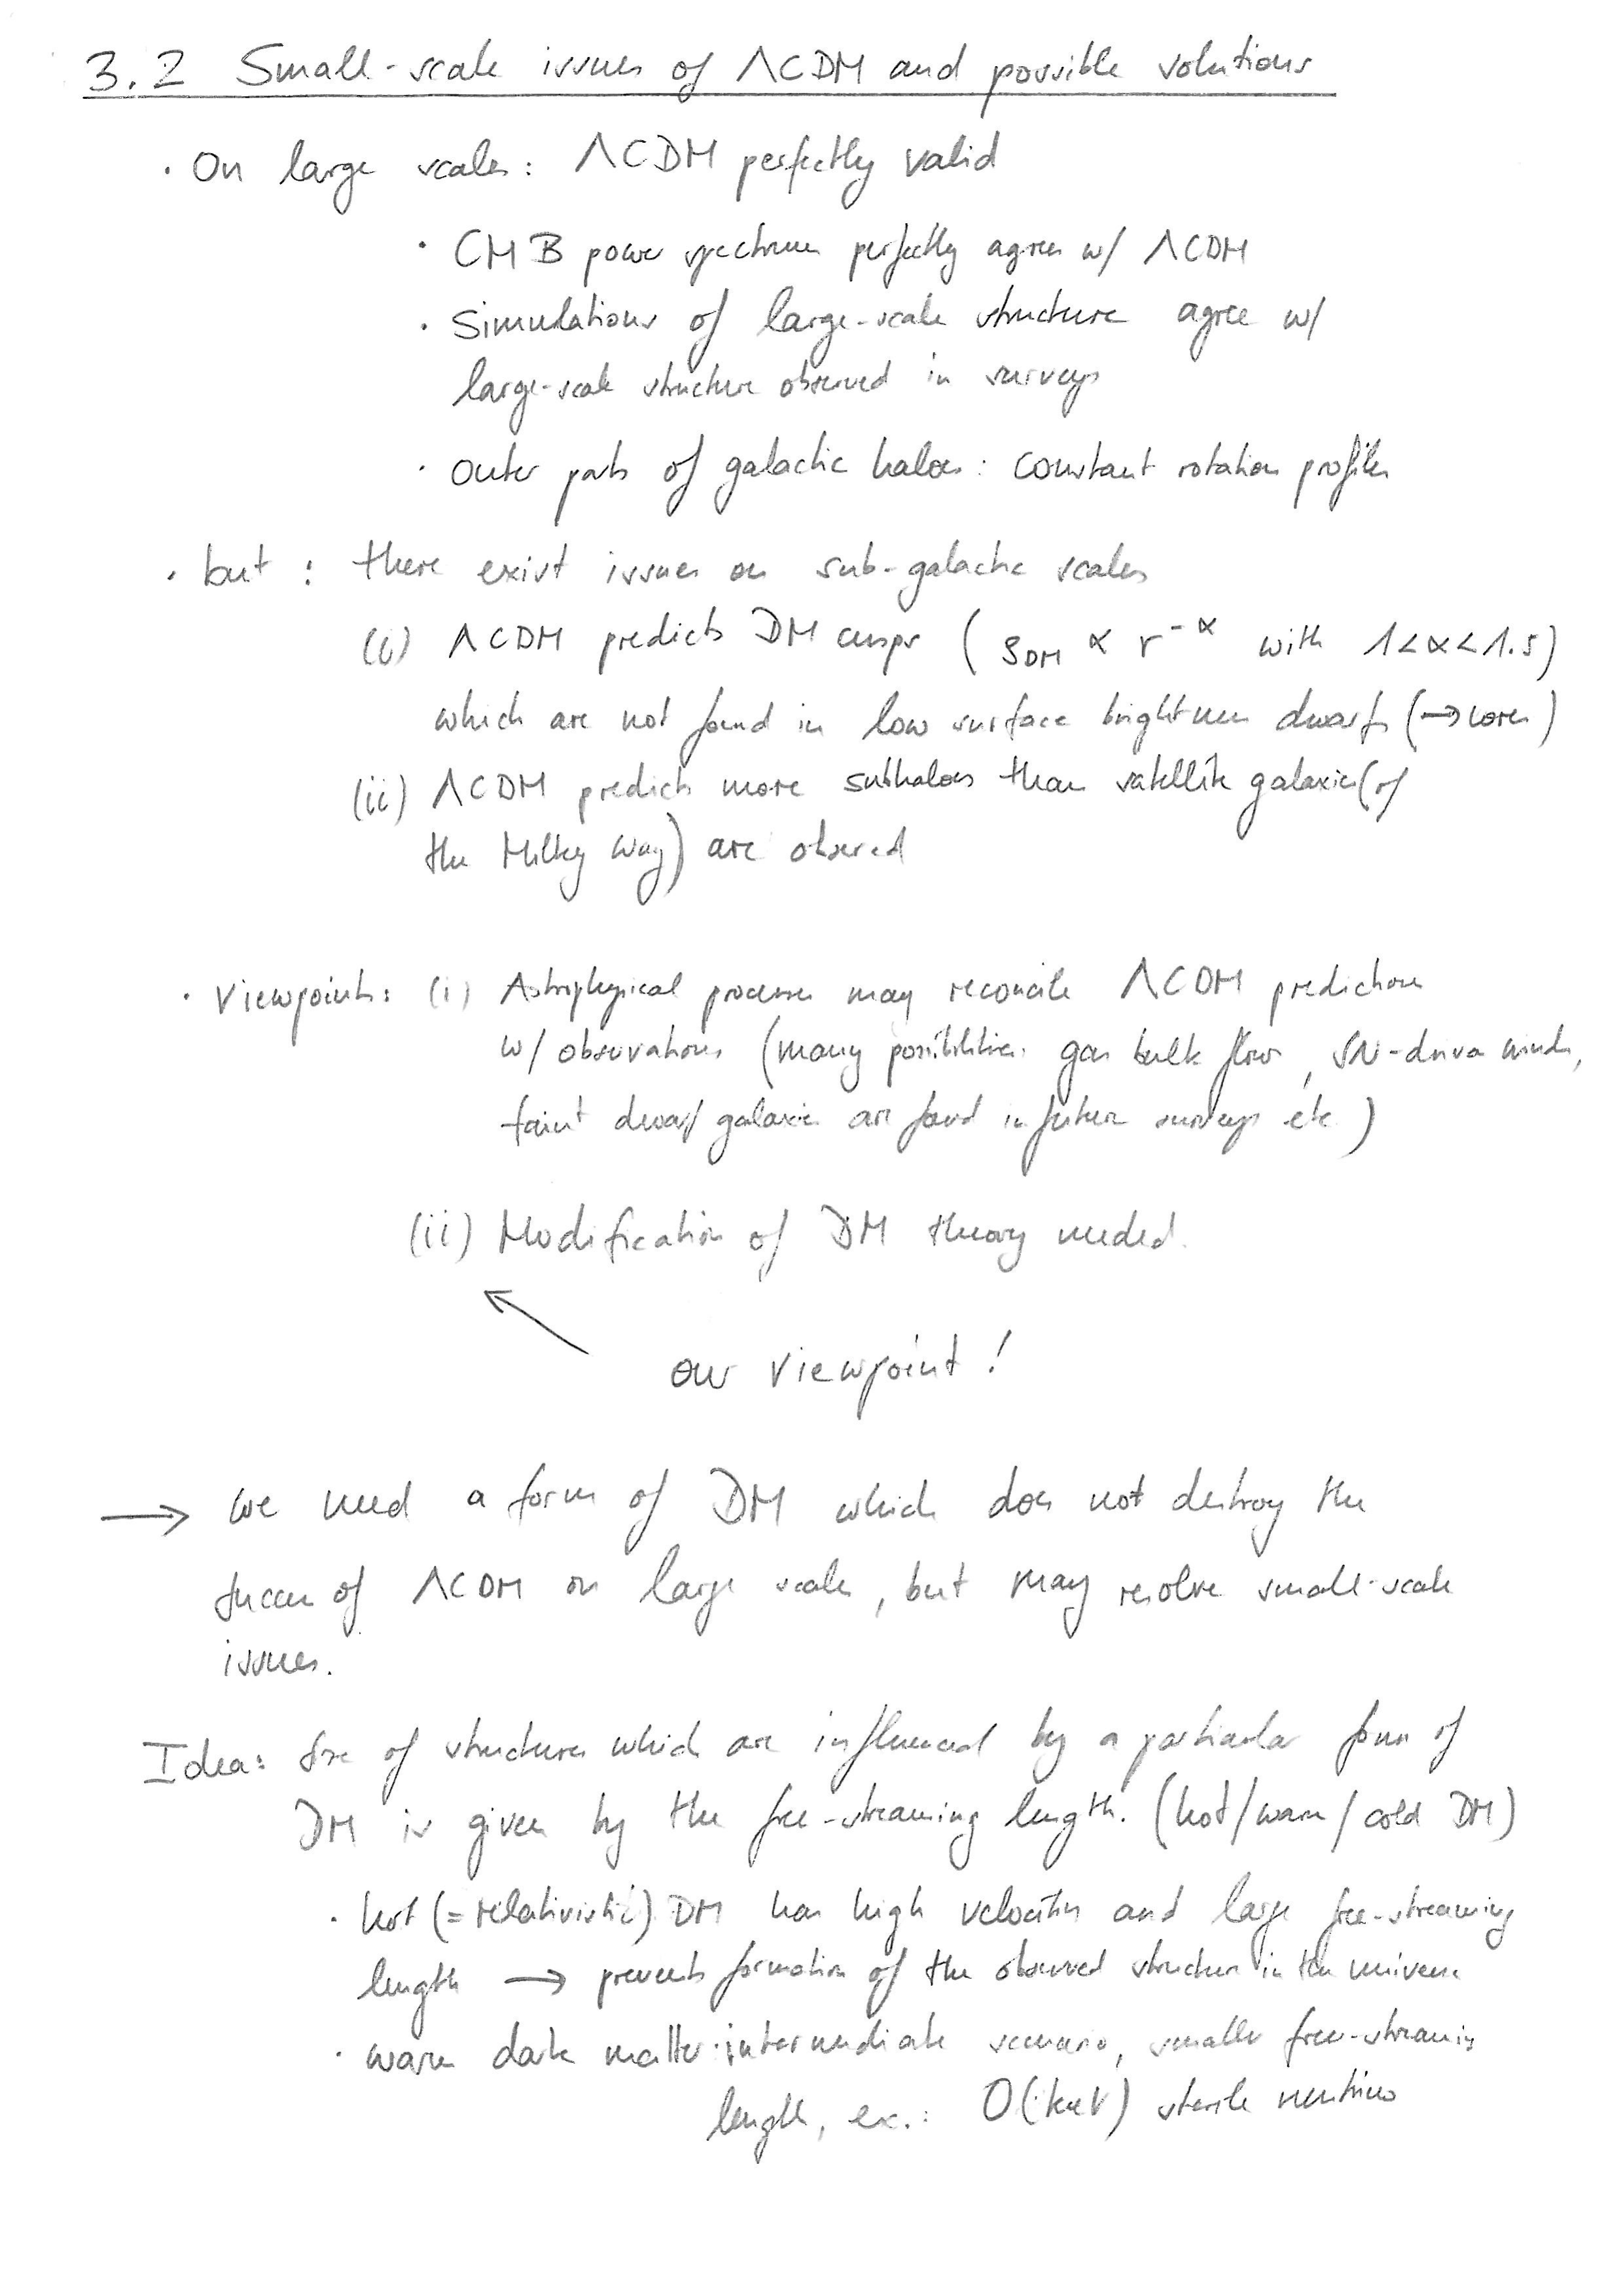 3.2 Small-scale issues of ΛCDM and possible solutions
· On large scales: ΛCDM perfectly valid
· CMB power spectrum perfectly agrees w/ ΛCDM
· Simulations of large-scale structure agree w/
large-scale structure observed in surveys
· Outer parts of galactic halos: constant rotation profiles
· but: there exist issues on sub-galactic scales
(i) ΛCDM predicts DM cusps (ρDM ∝ r^-α with 1<α<1.5)
which are not found in low surface brightness dwarfs (→ cores)
(ii) ΛCDM predicts more subhalos than satellite galaxies (of
the Milky Way) are observed
· Viewpoints: (i) Astrophysical processes may reconcile ΛCDM predictions
w/ observations (many possibilities: gas bulk flow, SN-driven winds,
faint dwarf galaxies are found in future surveys etc.)
(ii) Modification of DM theory needed.
our viewpoint!
→ we need a form of DM which does not destroy the
success of ΛCDM on large scales, but may resolve small-scale
issues.
Idea: Size of structures which are influenced by a particular form of
DM is given by the free-streaming length. (hot/warm/cold DM)
· hot (=relativistic) DM has high velocities and large free-streaming
length → prevents formation of the observed structures in the universe
· warm dark matter: intermediate scenario, smaller free-streaming
length, ex.: O(keV) sterile neutrino